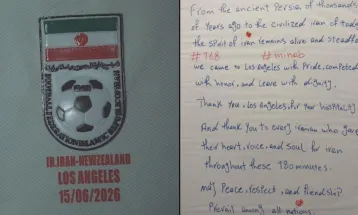 FOOTBALL FEDERATION ISLAMIC REPUBLIC OF IRAN
IR.IRAN-NEWZEALAND
LOS ANGELES
15/06/2026
From the ancient Persia of thousands
of Years ago to the civilized iran of today
the spirit of iran remains alive and steadfa
#168 #minab
we came to Los Angeles with Pride, competed
with honor, and leave with dignity.
Thank you, Los Angeles, for your Hospitality
And thank you to every iranian who gave
their heart, voice, and soul for iran
throughout these 180 minutes.
may Peace, respect, and friendship
Prevail among all nations.